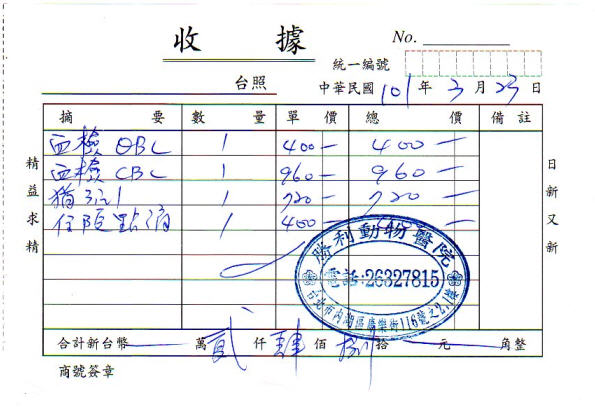 收 據
No.
統一編號
台照 中華民國 101 年 3 月 23 日
摘 要 數 量 單 價 總 價 備 註
血檢 CBC 1 400— 400—
血檢 CBC 1 960— 960—
1 720— 720—
住院點滴 1 400
精益求精
日新又新
勝利動物醫院
電話:26327815
台北市內湖區康樂街116號之2,1樓
合計新台幣 萬 貳 仟 肆 佰 捌 拾 元 角整
商號簽章